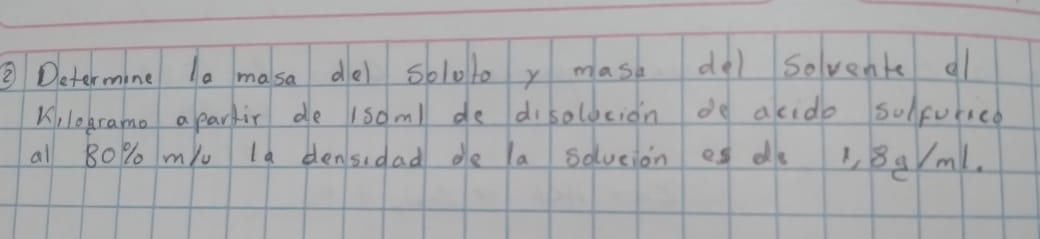 ② Determine la masa del soluto y masa del solvente al
Kilogramo apartir de 150ml de disolución de acido sulfurico
al 80% m/v la densidad de la solución es de 1,8g/ml.